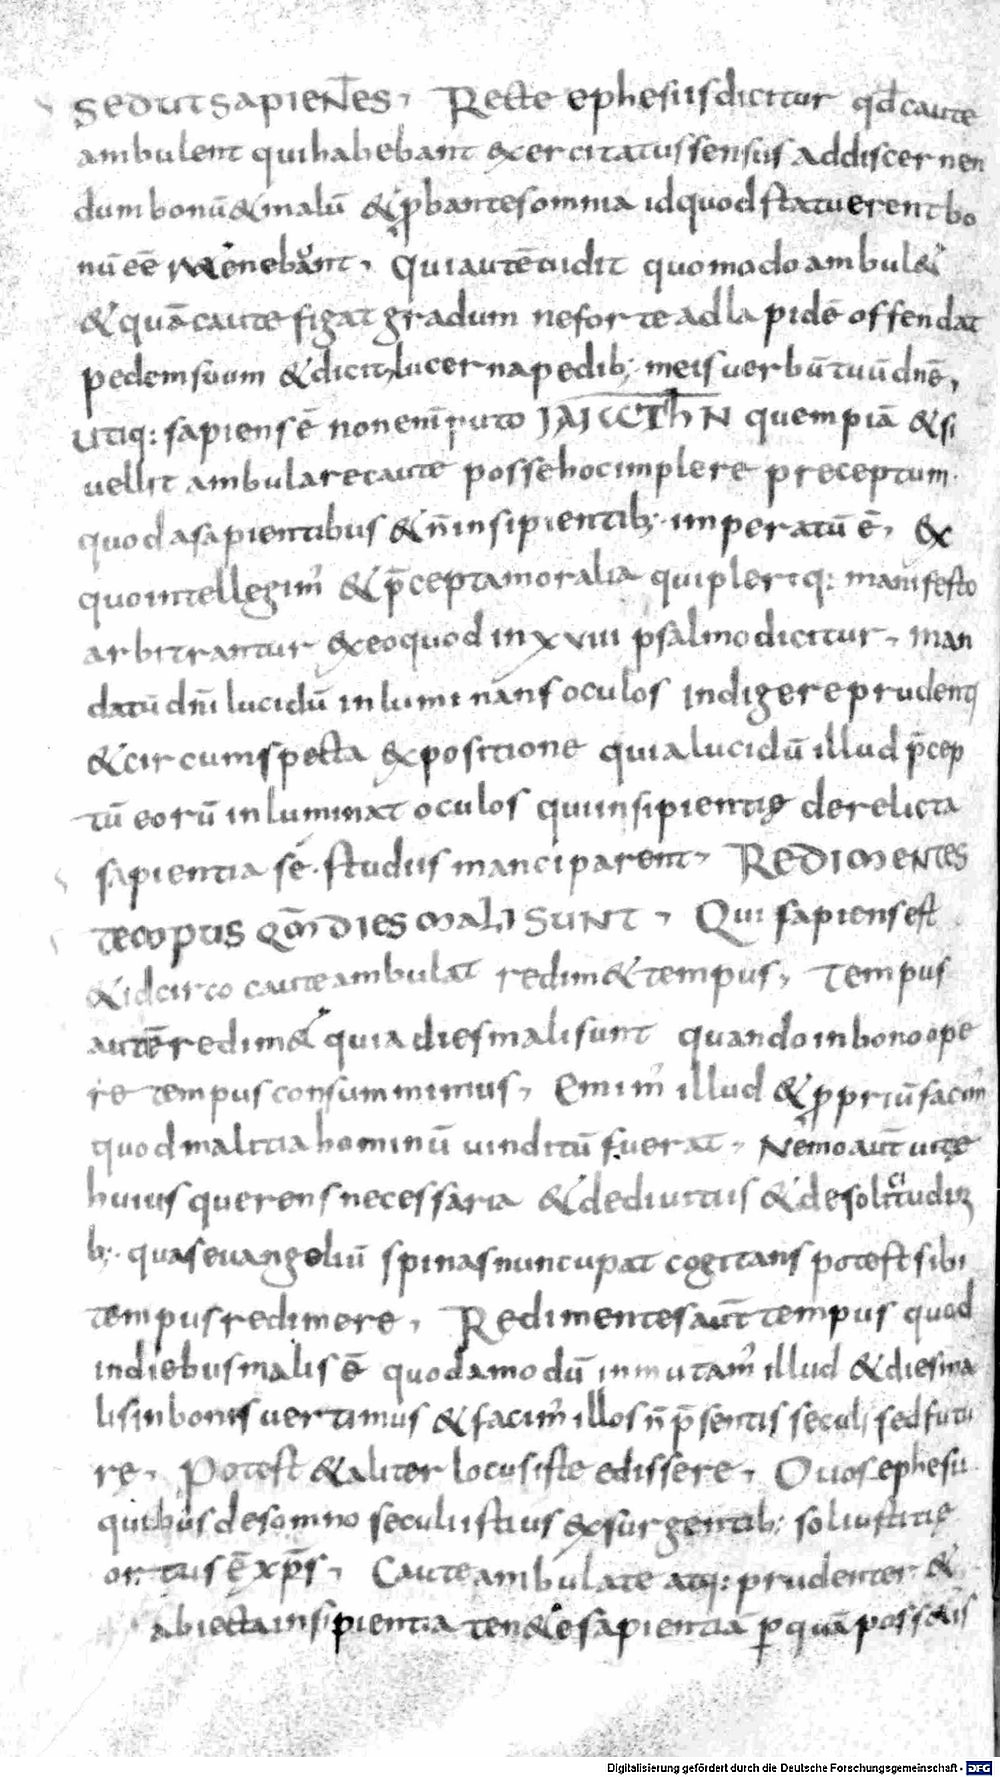 sed ut sapieñes, Recte ephesiis dicitur qđ caute
ambulent qui habebant exercitatus sensus ad discernen
dum bonū & malū & ꝓbantes omnia id quod statuerent bo
nū eē retenebant, Qui autē uidit quomodo ambul&
& quā caute figat gradum ne forte ad lapidē offendat
pedem suum & dicit, lucerna pedib; meis uerbū tuū dnē,
Utiq: sapiens ē non enī puto quempiā & si
uellit ambulare caute posse hoc implere preceptum.
quod a sapientibus & n̄ insipientib; imperatū ē, Ex
quo intellegim' & p̄cepta moralia qui pleriq: manifesto
arbitrantur ex eo quod in xviii psalmo dicitur, man
datū dn̄i lucidū inluminans oculos indigere prudenti
& circumspecta expositione quia lucidū illud p̄cep
tū eorū inluminat oculos qui insipientię derelicta
sapientia sē. studiis manciparent, Redimentes
tempus qm̄ dies mali sunt, Qui sapiens est
& idcirco caute ambulat redim& tempus, Tempus
autē redim& quia dies mali sunt quando in bono ope
re tempus consummimus, Emim' illud & ꝓpriū facim'
quod malitia hominū uinditū fuerat, Nemo aut̄ uitę
huius querens necessaria & de diuitiis & de solicitudin
b; quas euangeliū spinas nuncupat cogitans potest sibi
tempus redimere, Redimentes aut̄ tempus quod
in diebus malis ē quodamodū inmutam' illud & dies ma
lis in bonis uertimus & facim' illos n̄ p̄sentis seculi sed futu
re, Potest & aliter locus iste edissere, O uos ephesii
quibus de somno seculi istius exsurgentib; sol iustitię
ortus ē xp̄s, Caute ambulate atq: prudenter &
abiecta insipientia ten&e sapientiā p quā possitis